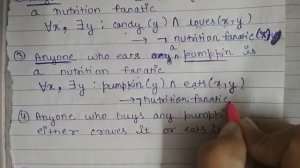 a nutrition fanatic
∀x, ∃y : candy(y) ∧ loves(x,y)
→ ¬ nutrition fanatic(x)
③ Anyone who eats a pumpkin is
a nutrition fanatic
∀x, ∃y : pumpkin(y) ∧ eats(x,y)
→ ¬ nutrition fanatic
④ Anyone who buys any pumpk
either craves it or eats i